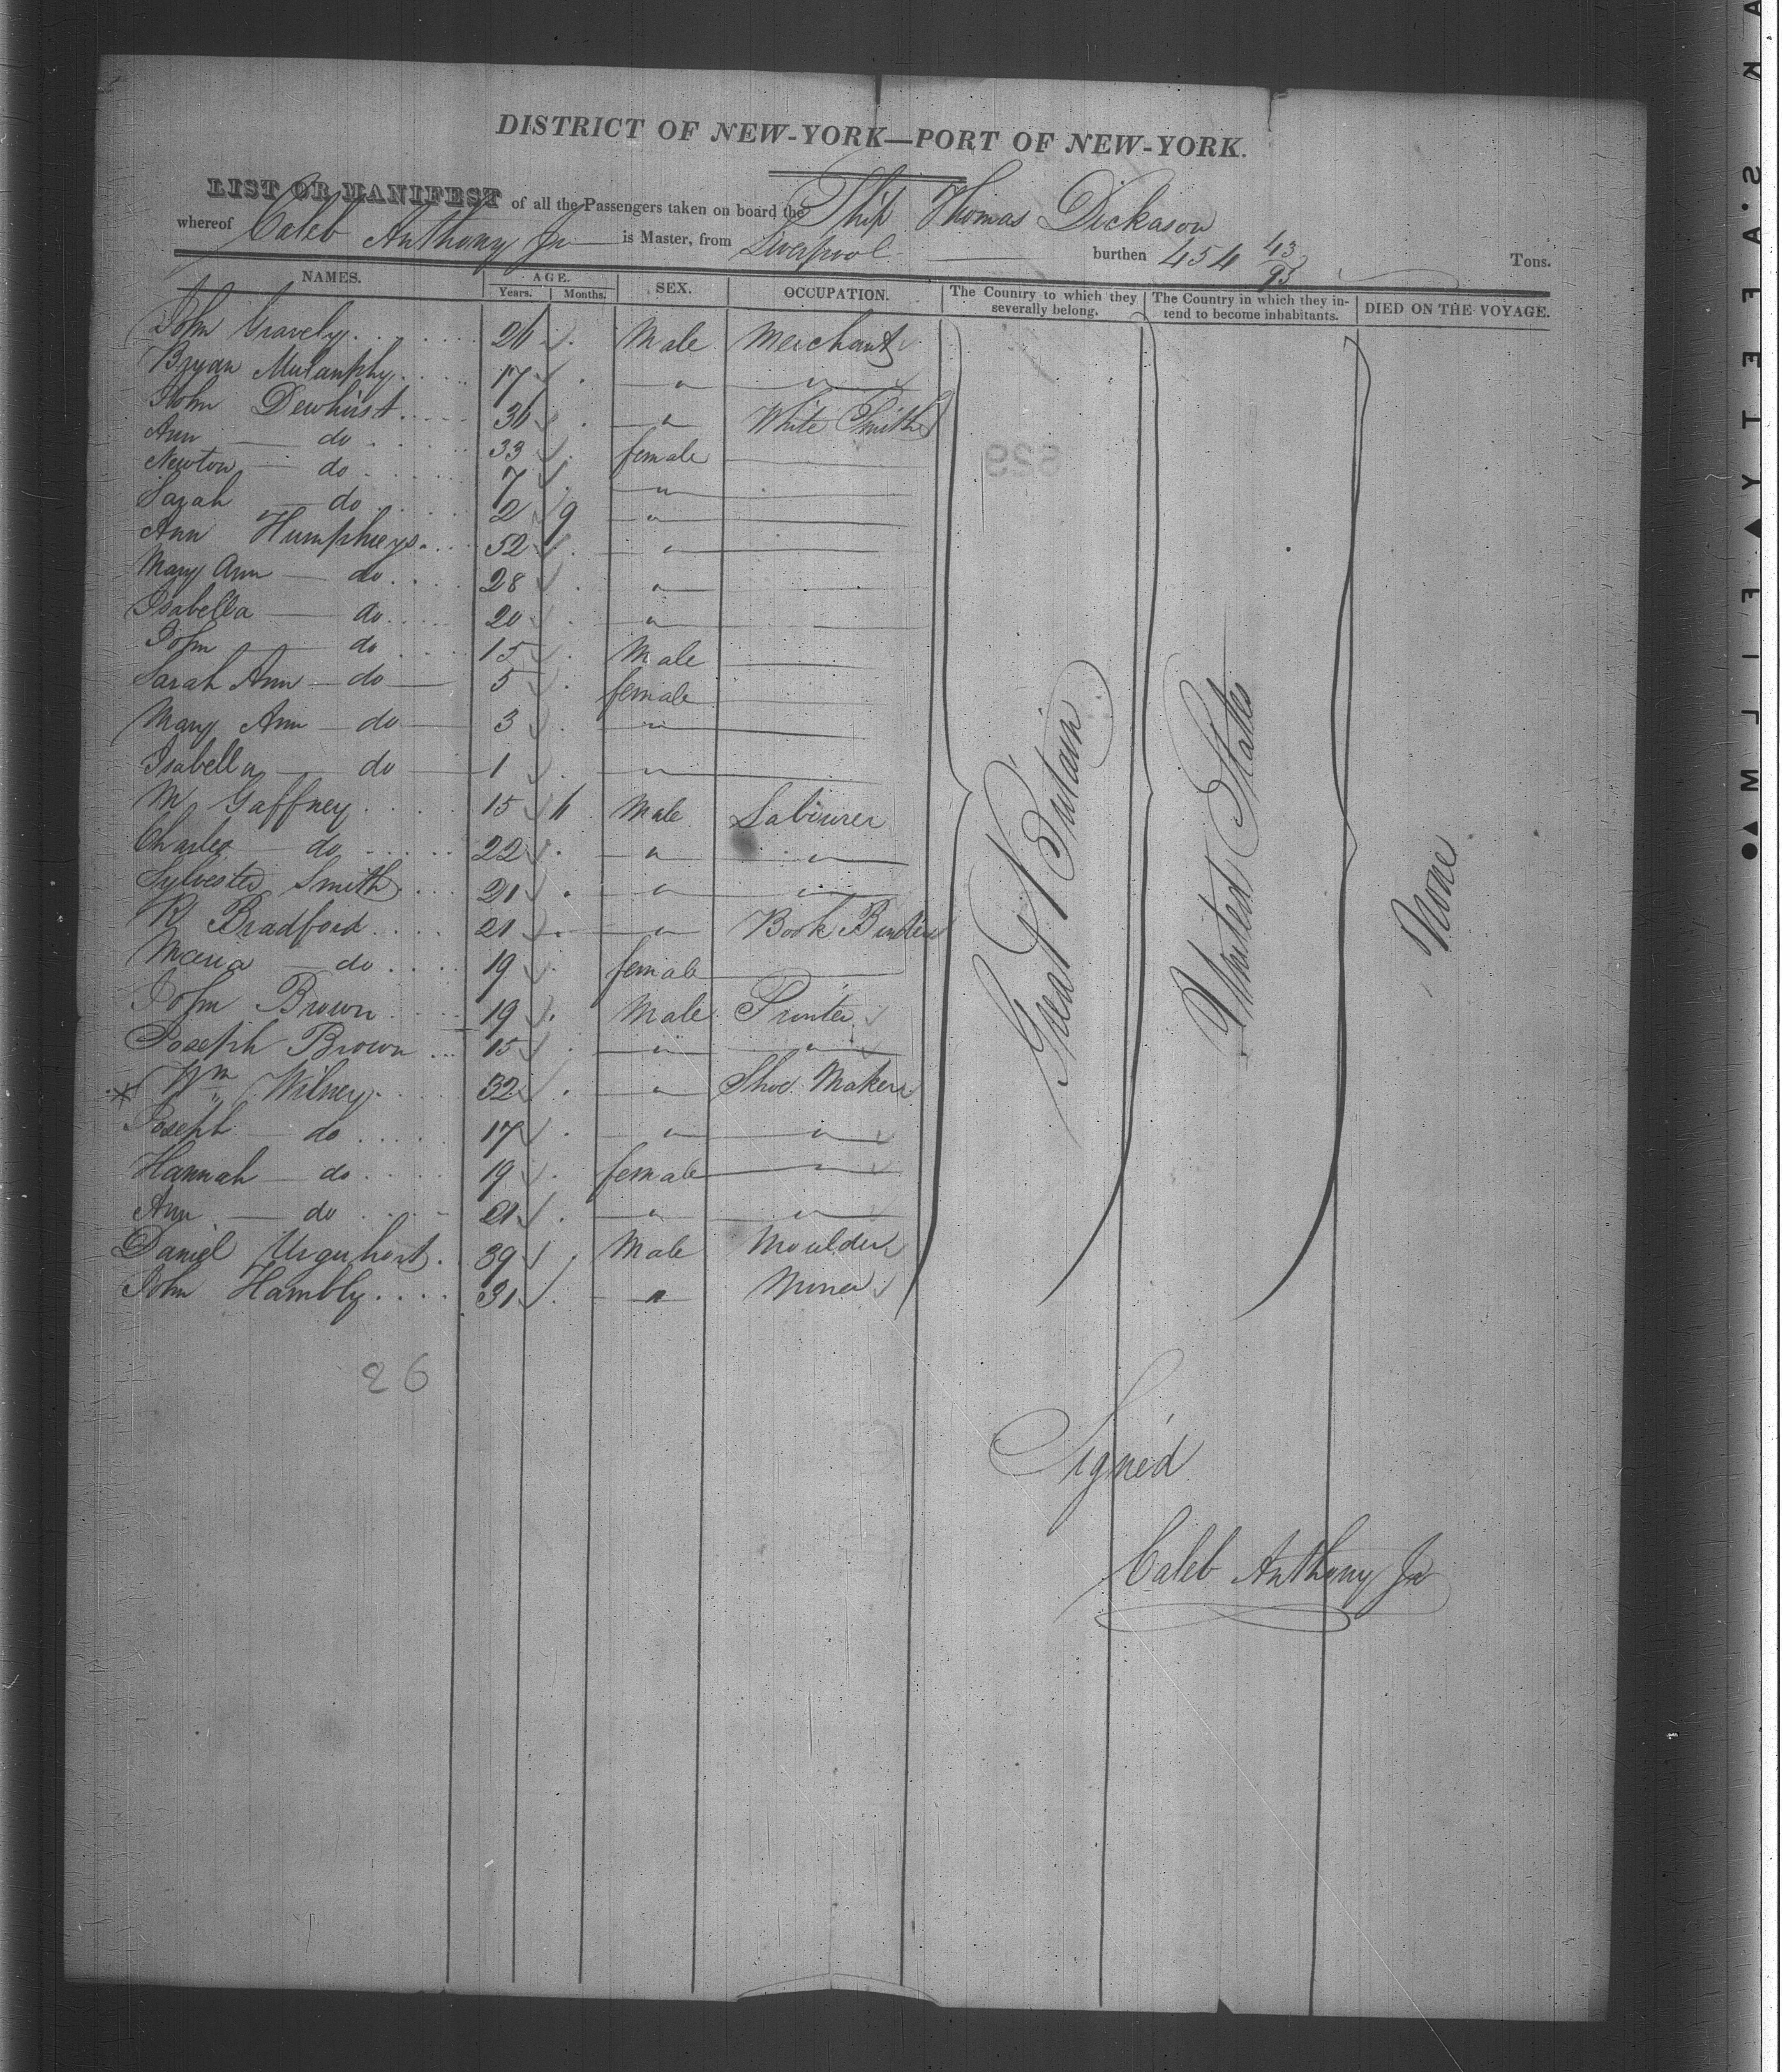 DISTRICT OF NEW-YORK—PORT OF NEW-YORK.
LIST OR MANIFEST of all the Passengers taken on board the Ship Thomas Dickason
whereof Caleb Anthony Jr is Master, from Liverpool burthen 454 43/95 Tons.
NAMES. AGE. Years. Months. SEX. OCCUPATION. The Country to which they severally belong. The Country in which they intend to become inhabitants. DIED ON THE VOYAGE.
John Gravely 26 Male Merchant
Bryan Mulanphy 17 " "
John Dewhirst 36 " White Smith
Ann do 33 female
Newton do 7 "
Sarah do 2 9 "
Ann Humphreys 52 "
Mary Ann do 28 "
Isabella do 20 "
John do 15 Male
Sarah Ann do 5 female
Mary Ann do 3 "
Isabella do 1 "
M Gaffney 15 6 Male Labourer
Charles do 22 " "
Sylvester Smith 21 " "
R Bradford 21 " Book Binder
Maria do 19 female
John Brown 19 Male Printer
Joseph Brown 15 " "
* Wm Wilney 32 " Shoe Maker
Joseph do 17 " "
Hannah do 19 female "
Ann do 21 " "
Daniel Urquhart 39 Male Moulder
John Hambly 31 " Miner
Great Britain
United States
None
26
Signed
Caleb Anthony Jr